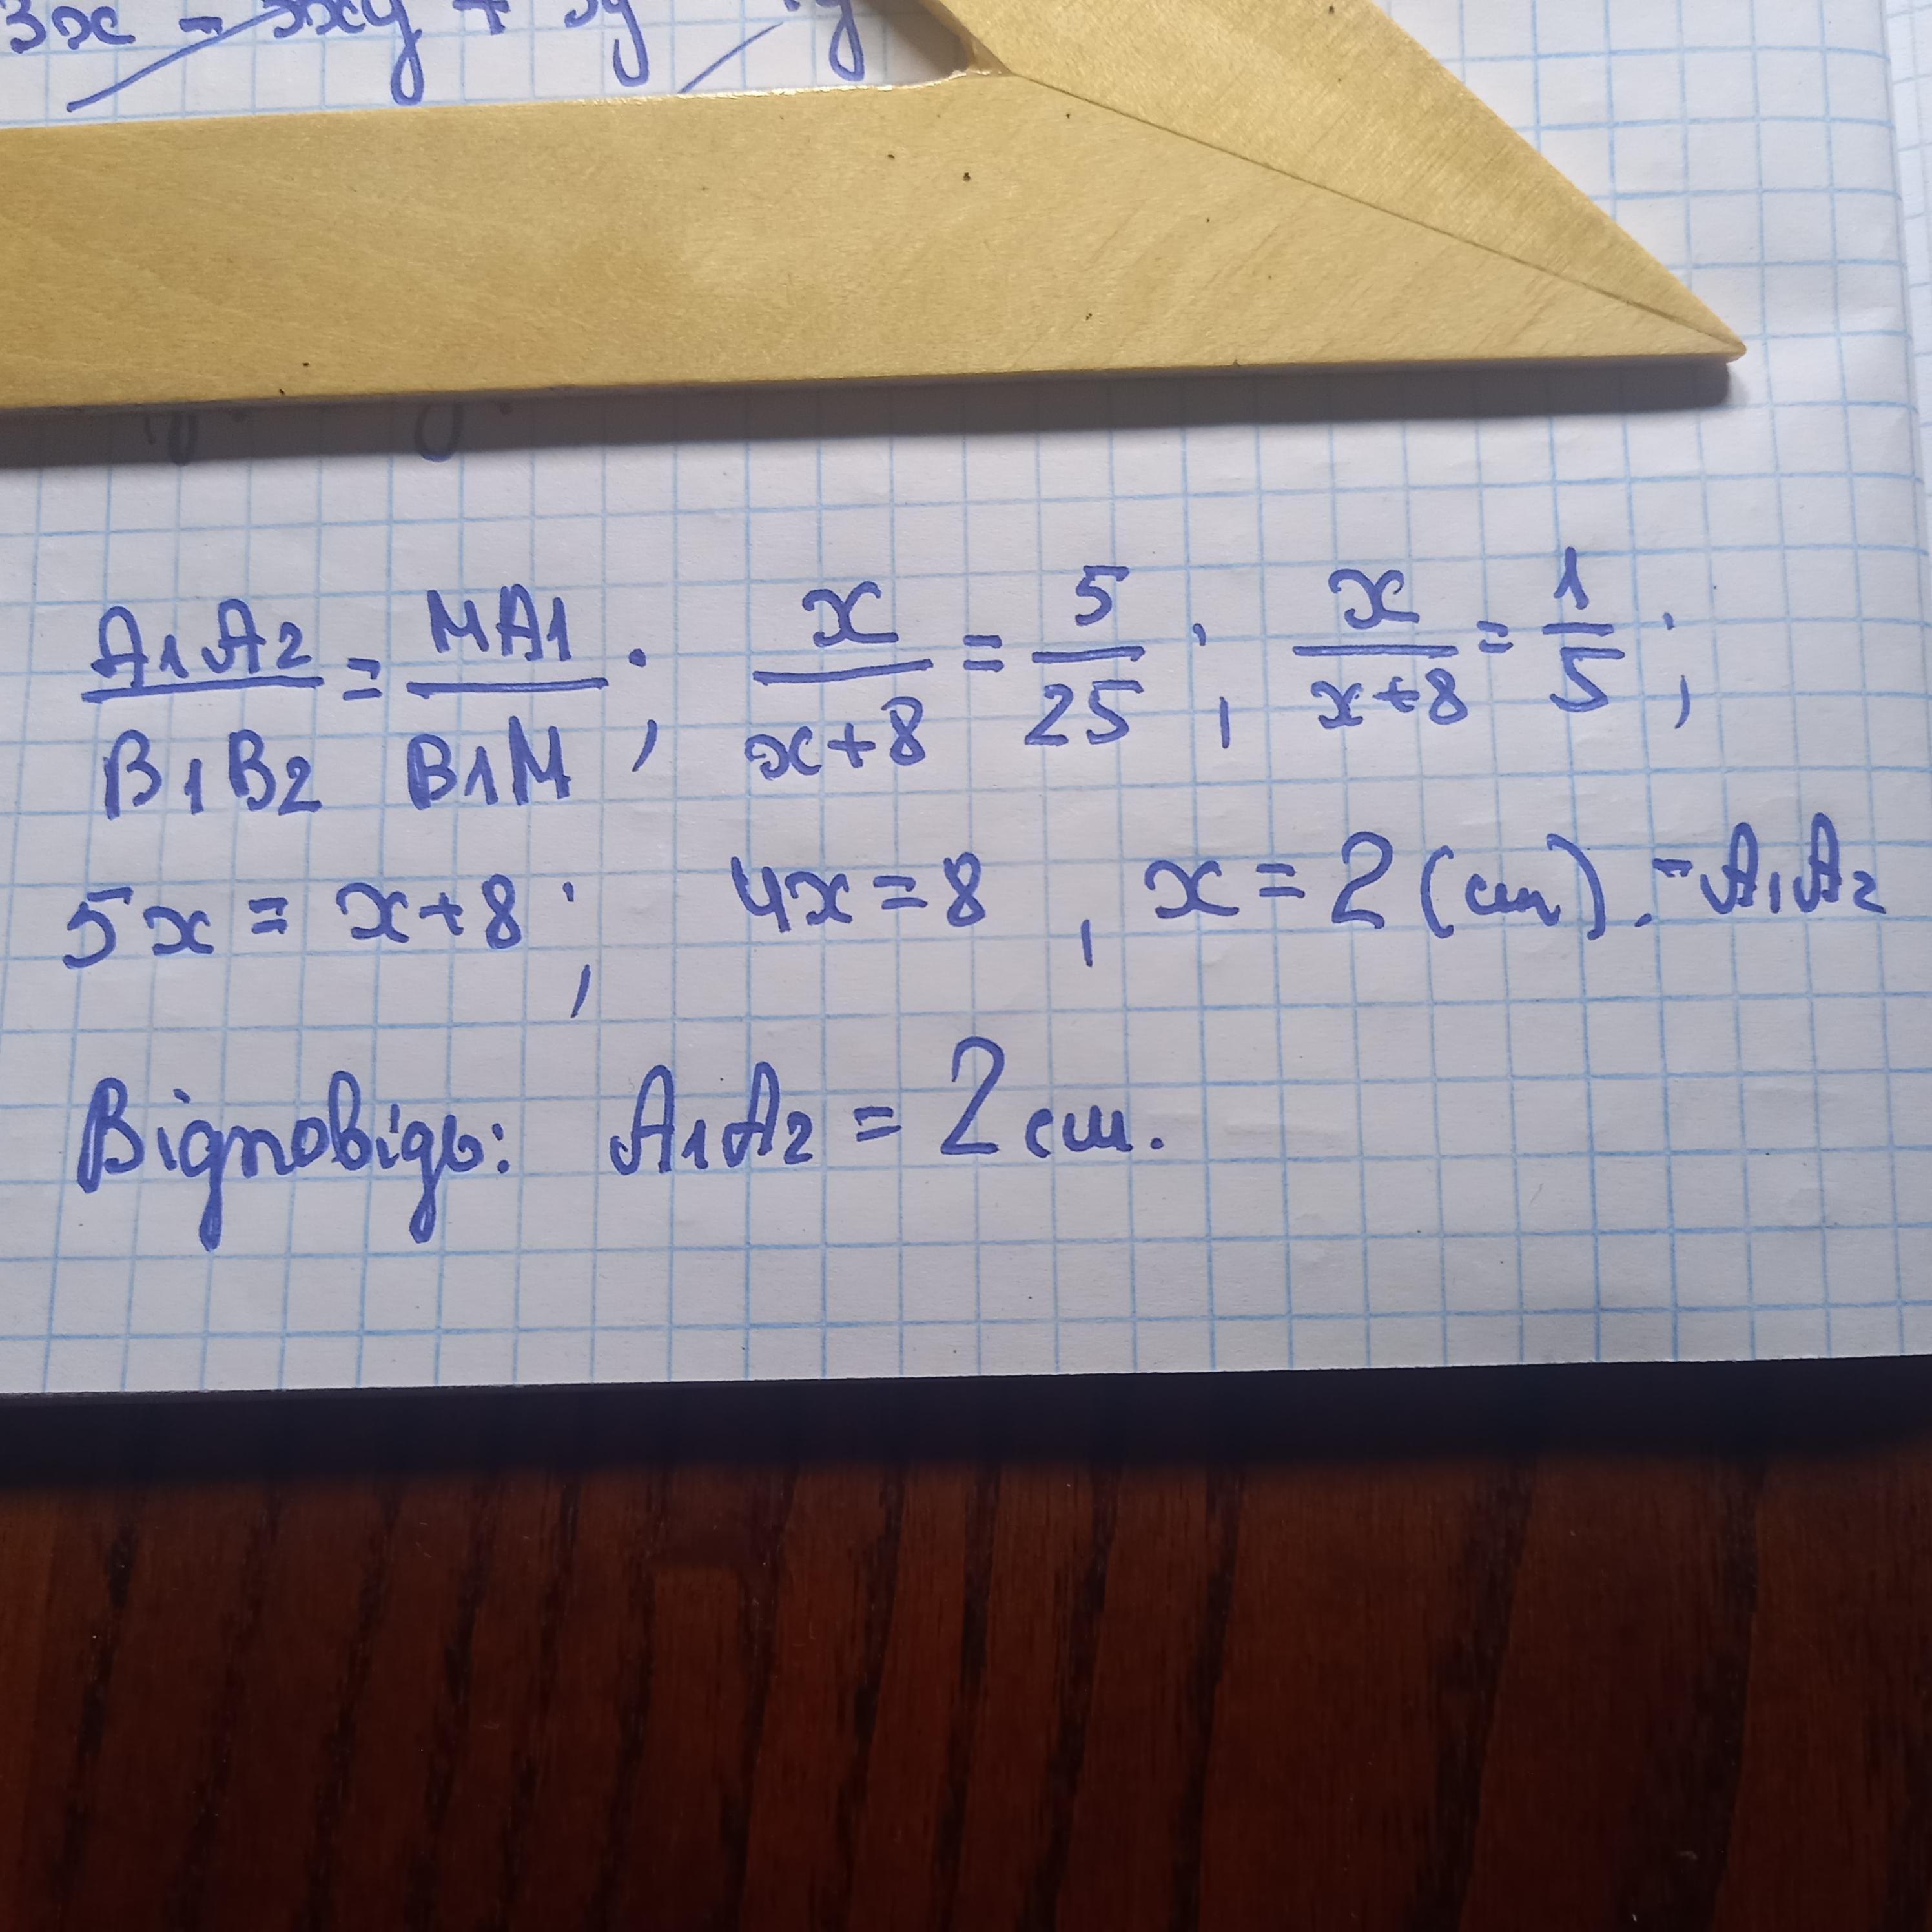 3x - 3xy + 3y
A1A2/B1B2 = MA1/B1M; x/(x+8) = 5/25; x/(x+8) = 1/5;
5x = x+8; 4x = 8, x = 2 (см). = A1A2
Відповідь: A1A2 = 2 см.